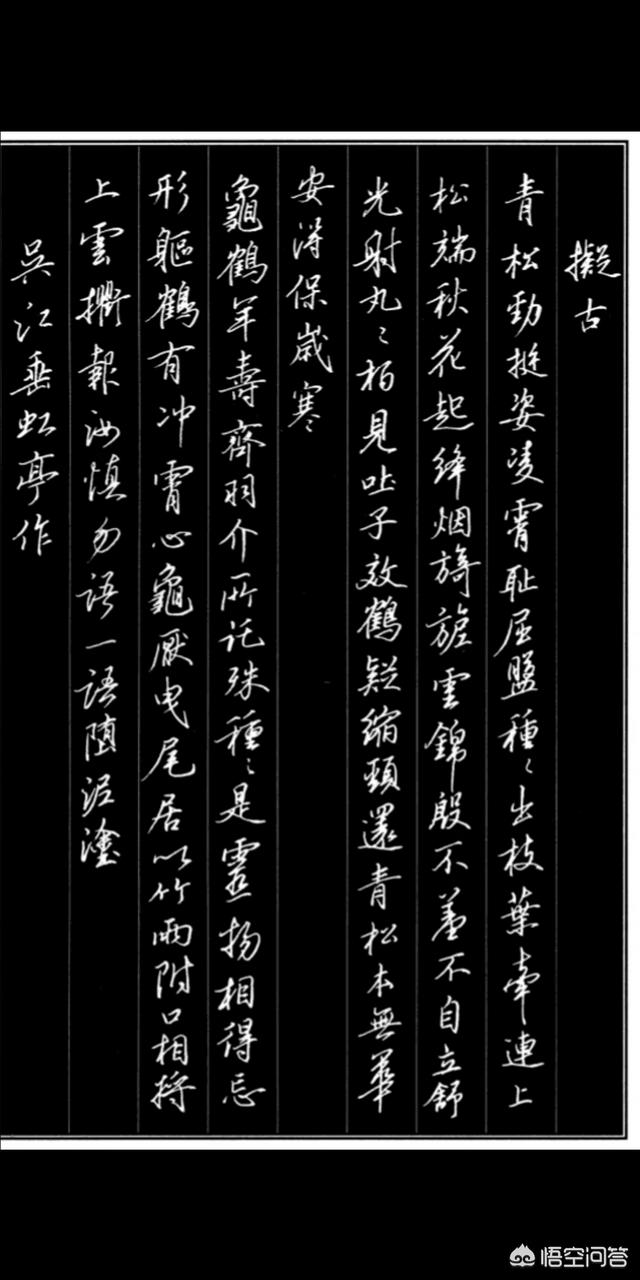 擬古
青松勁挺姿凌霄恥屈盤種〻出枝葉牽連上
松端秋花起絳烟旖旎雲錦殷不羞不自立舒
光射丸〻柏見吐子效鶴疑縮頸還青松本無華
安得保歲寒
龜鶴年壽齊羽介所託殊種〻是靈物相得忘
形軀鶴有冲霄心龜厭曳尾居以竹兩附口相將
上雲衢報汝慎勿語一語隨泥塗
吳江垂虹亭作
悟空问答